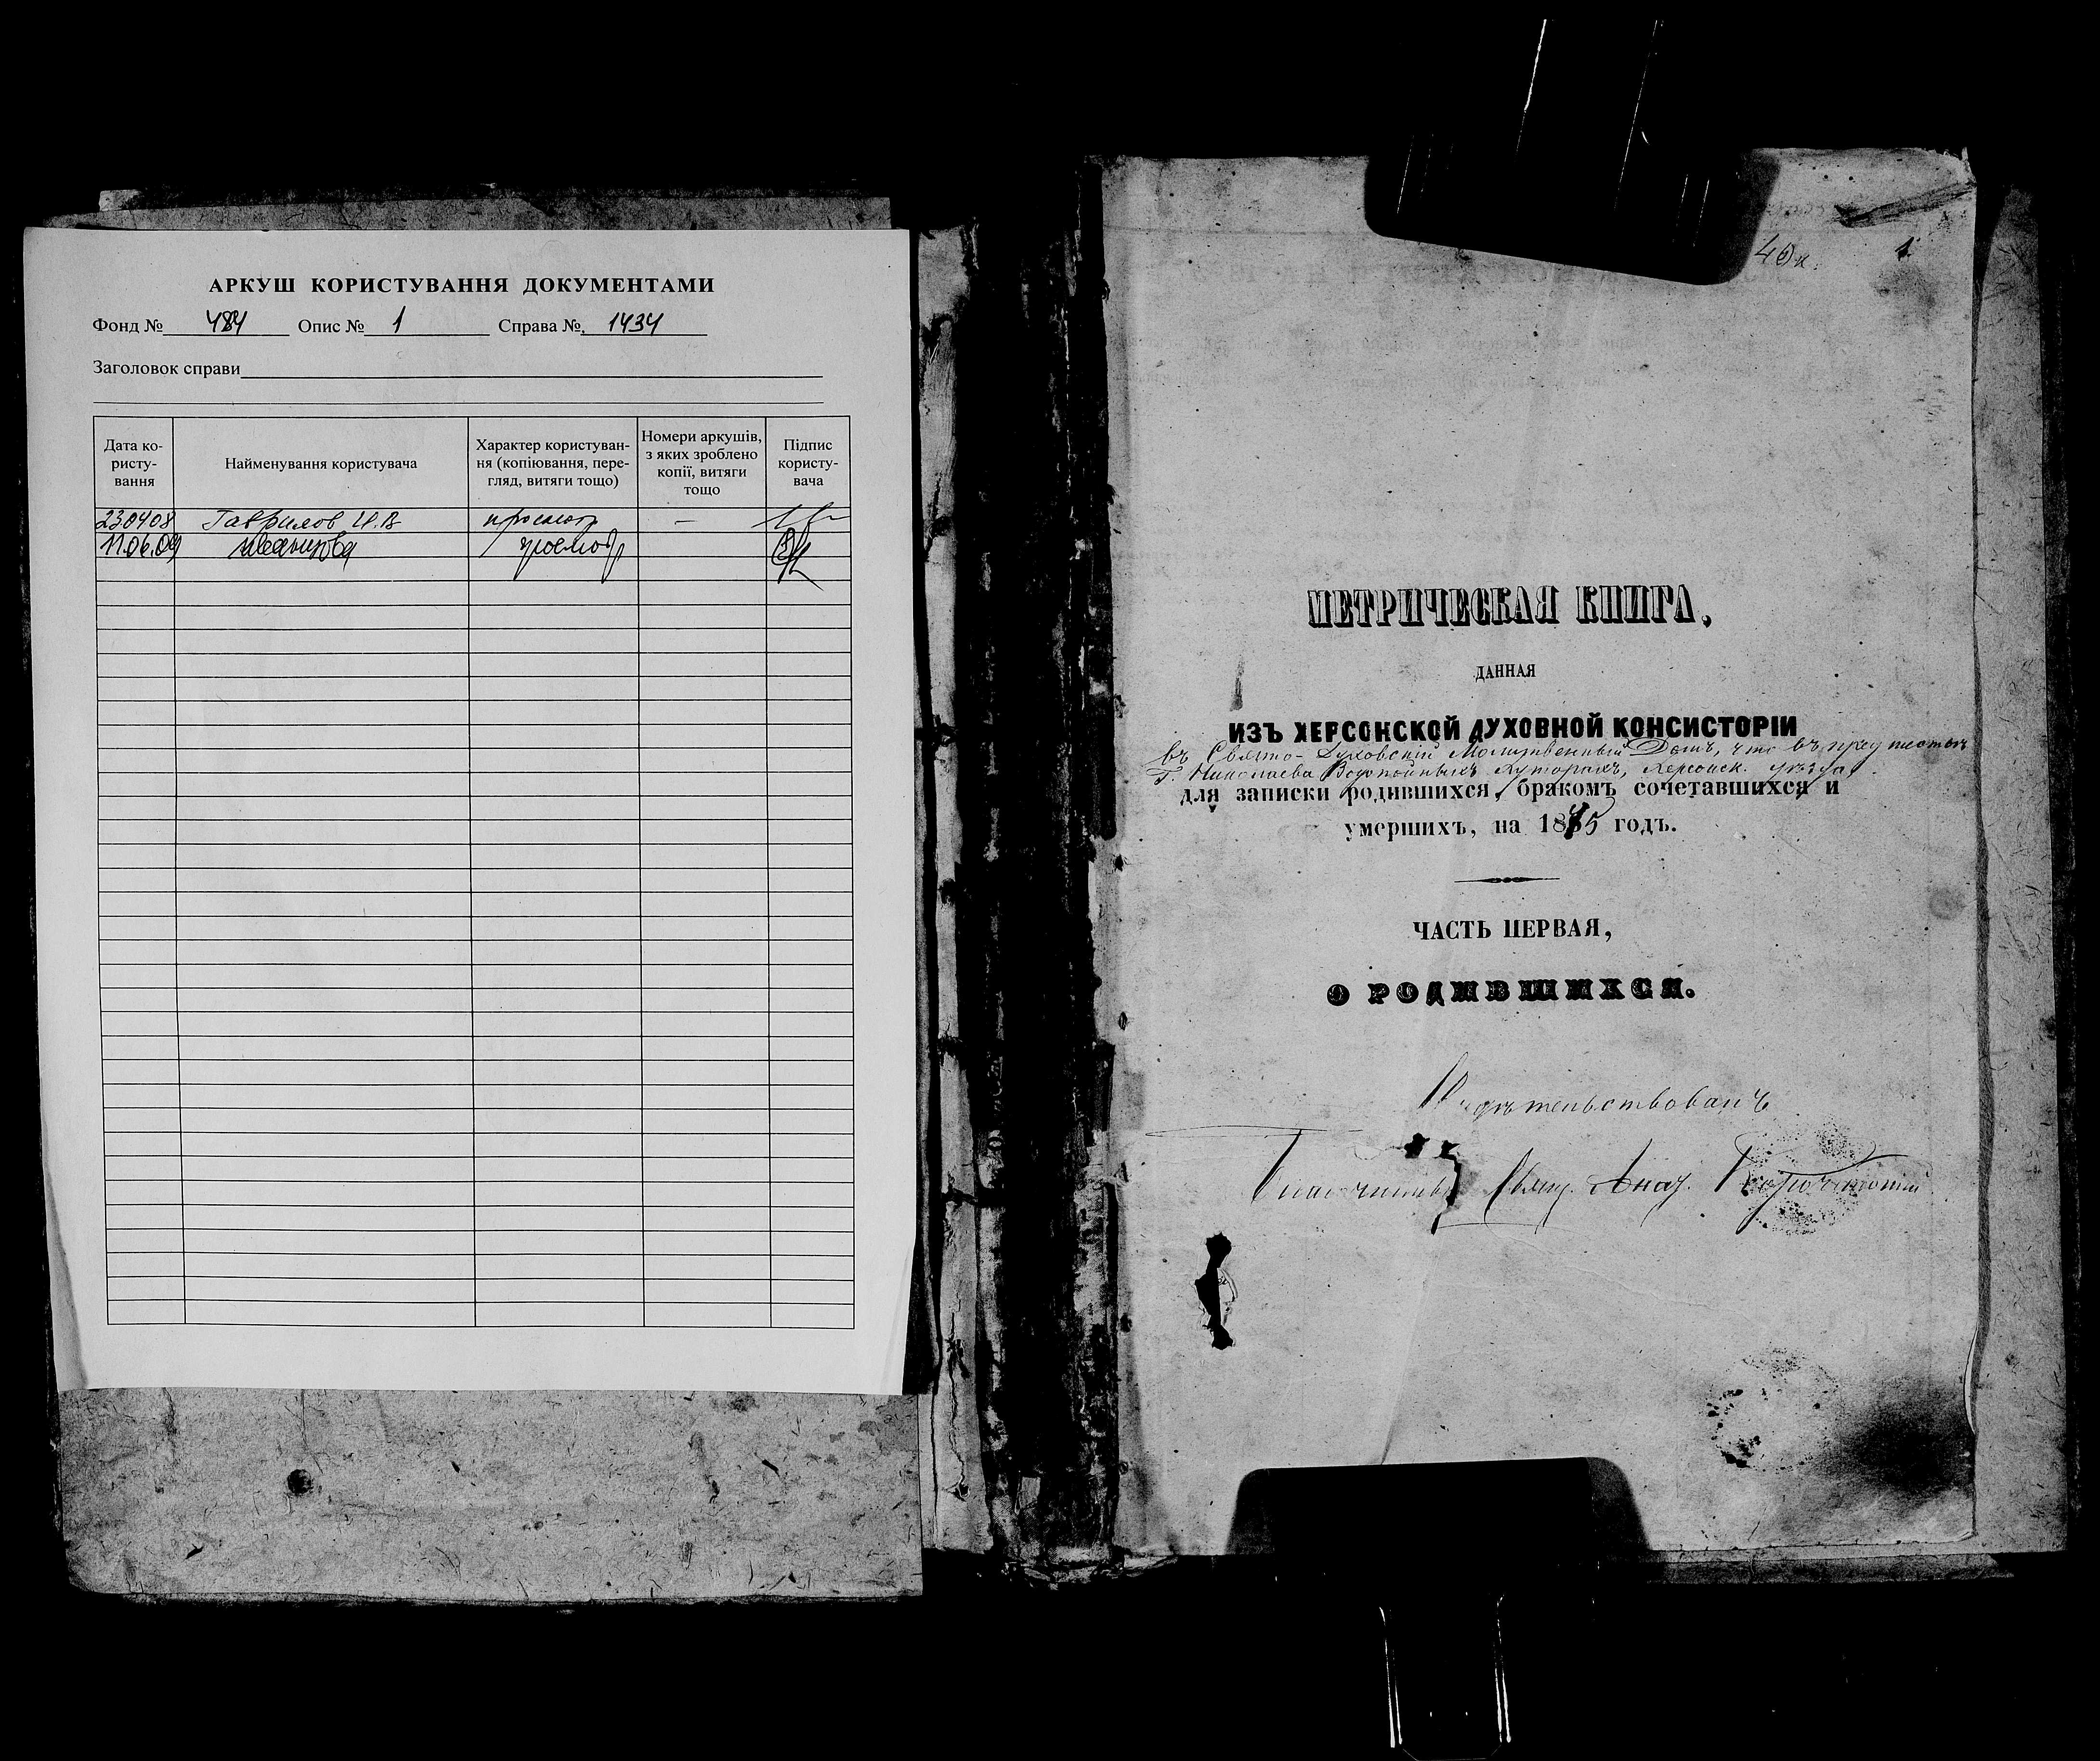 АРКУШ КОРИСТУВАННЯ ДОКУМЕНТАМИ
Фонд № 484 Опис № 1 Справа № 1434
Заголовок справи
Дата користування
Найменування користувача
Характер користування (копіювання, перегляд, витяги тощо)
Номери аркушів, з яких зроблено копії, витяги тощо
Підпис користувача
230408 Гаврилов И.В. просмотр —
11.06.09 просмотр
1
МЕТРИЧЕСКАЯ КНИГА,
ДАННАЯ
ИЗЪ ХЕРСОНСКОЙ ДУХОВНОЙ КОНСИСТОРІИ
въ Свято-Духовскій Молитвенный Домъ, что въ предместьи
Г. Николаева Водопойныхъ Хуторахъ, Херсонск. уѣзда,
для записки родившихся, бракомъ сочетавшихся и
умершихъ, на 1875 годъ.
ЧАСТЬ ПЕРВАЯ,
О РОДИВШИХСЯ.